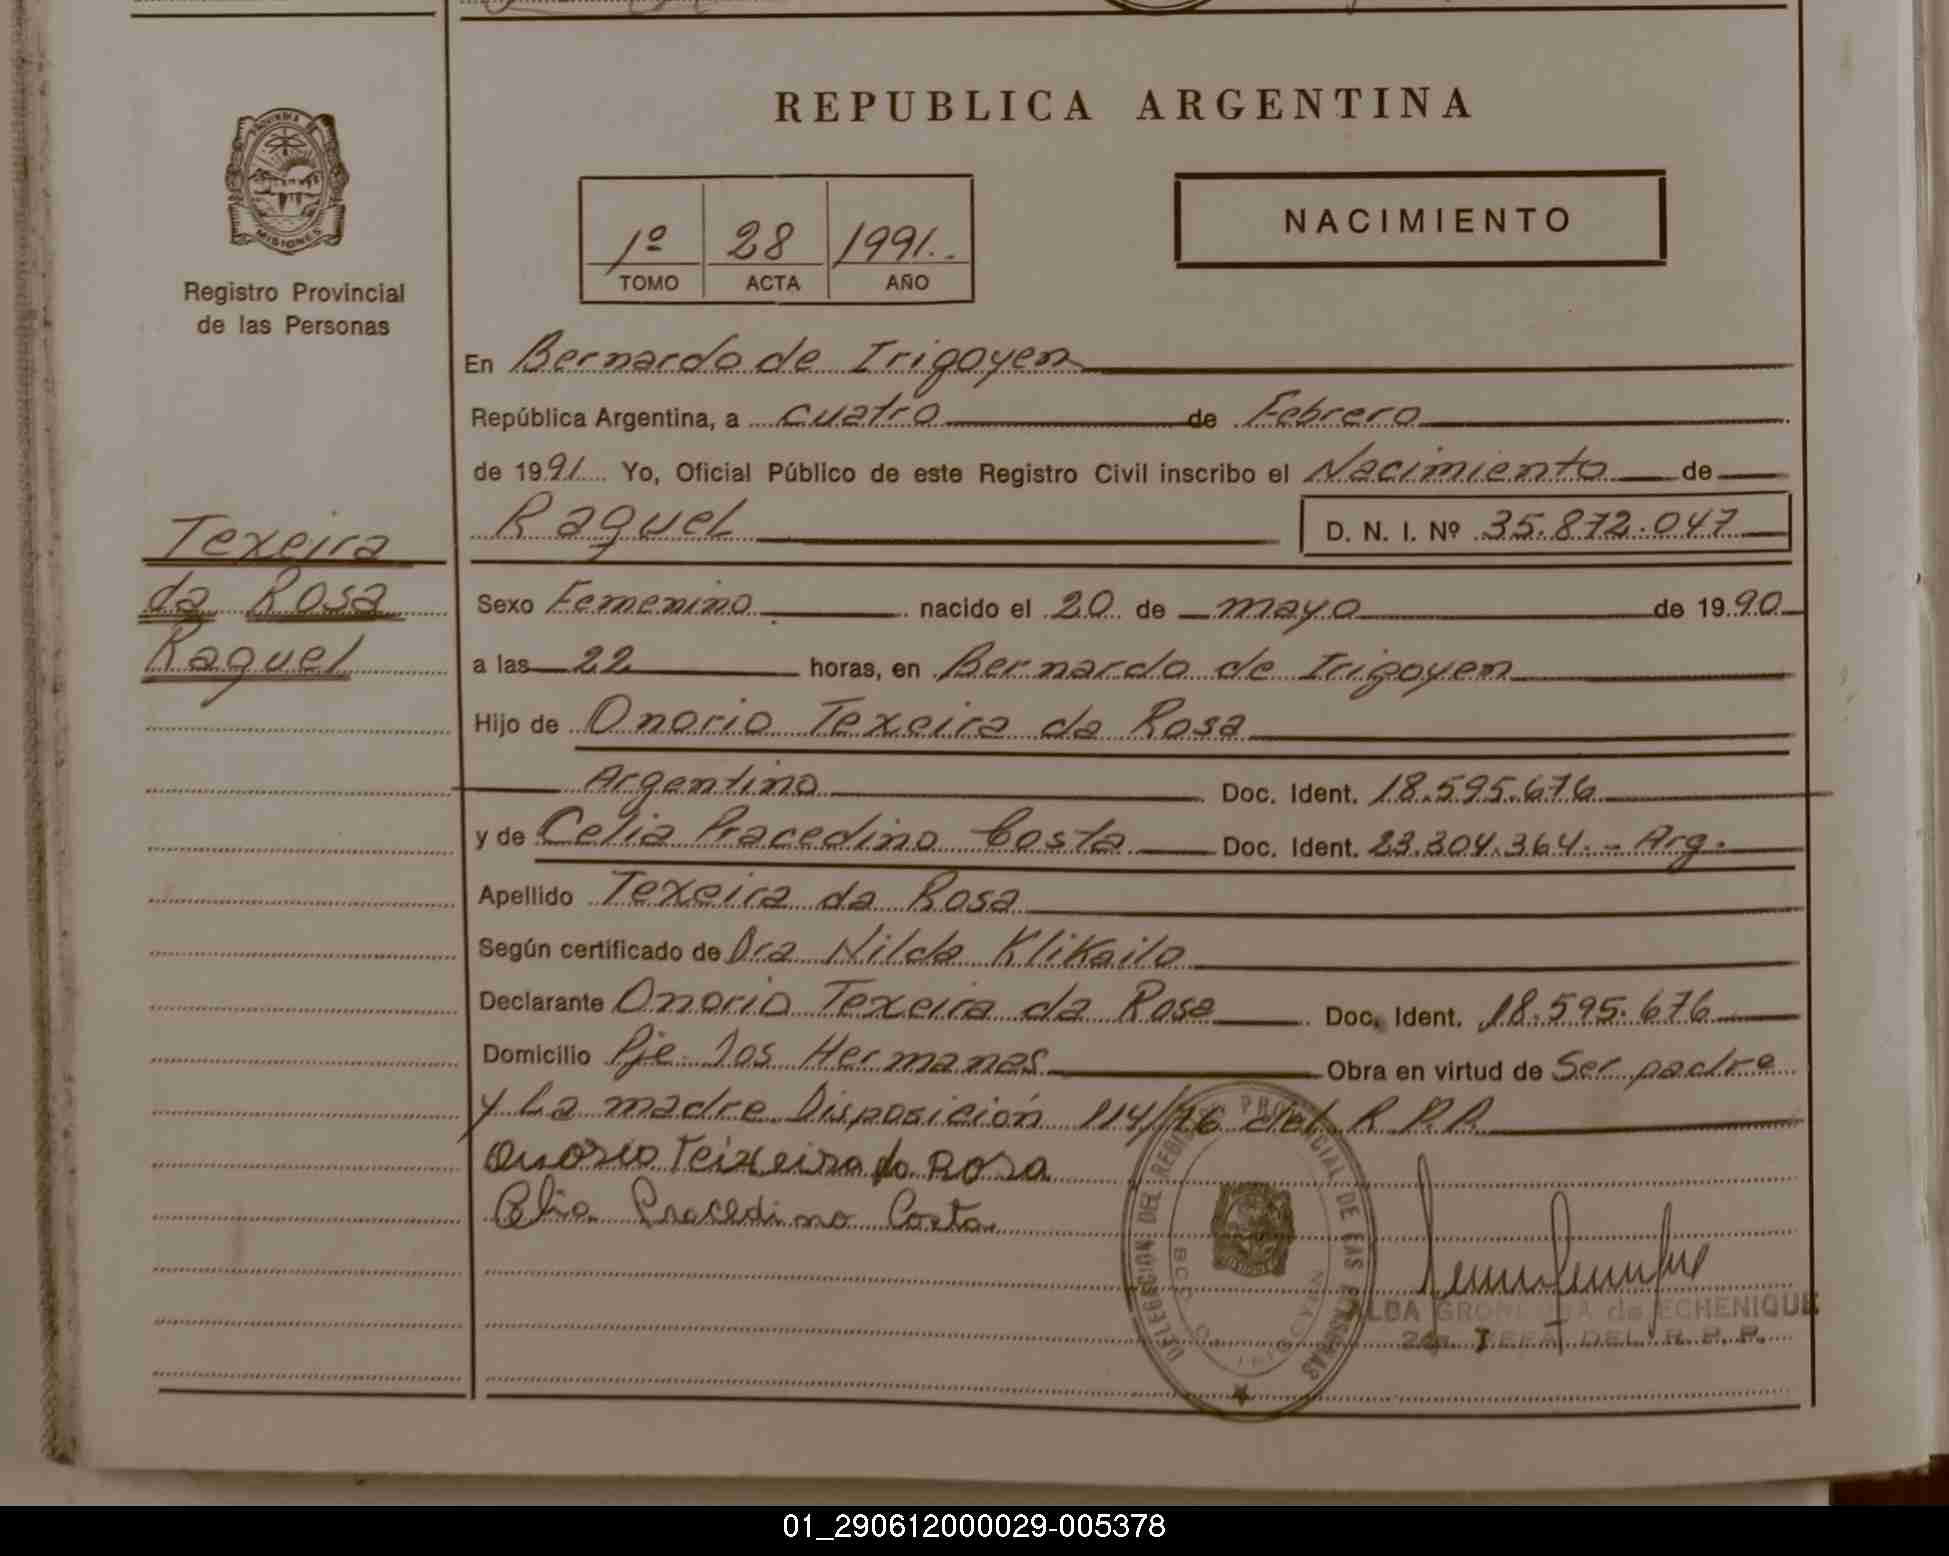 REPUBLICA ARGENTINA
PROVINCIA DE
MISIONES
Registro Provincial
de las Personas
1º 28 1991..
TOMO ACTA AÑO
NACIMIENTO
En Bernardo de Irigoyen
República Argentina, a cuatro de Febrero
de 1991 Yo, Oficial Público de este Registro Civil inscribo el Nacimiento de
Raquel D. N. I. Nº 35.872.047
Texeira
da Rosa
Raquel
Sexo Femenino nacido el 20 de mayo de 1990
a las 22 horas, en Bernardo de Irigoyen
Hijo de Onorio Texeira da Rosa
Argentino Doc. Ident. 18.595.676
y de Celia Pracedino Costa Doc. Ident. 23.304.364.- Arg.
Apellido Texeira da Rosa
Según certificado de Dra Nilda Klikailo
Declarante Onorio Texeira da Rosa Doc. Ident. 18.595.676
Domicilio Pje. Dos Hermanas Obra en virtud de Ser padre
y La madre Disposición 114/76 del R.P.P.
Onorio Teixeira da Rosa
Celia Pracedino Costa
DELEGACION DEL REGISTRO PROVINCIAL DE LAS PERSONAS
BDO. DE IRIGOYEN
ALDA de ECHENIQUE
JEFA DEL R. P. P.
01_290612000029-005378